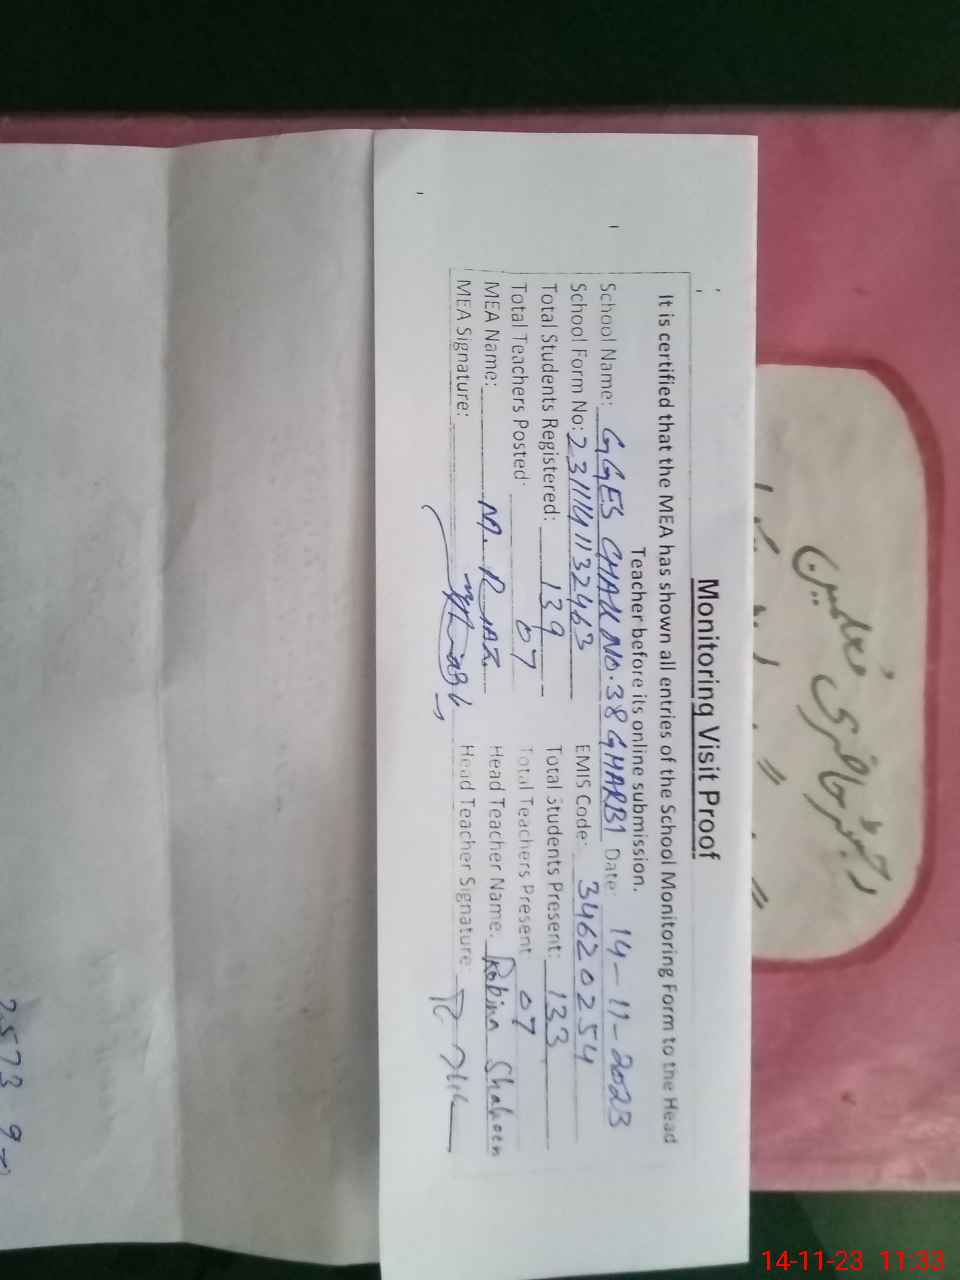 Monitoring Visit Proof
It is certified that the MEA has shown all entries of the School Monitoring Form to the Head
Teacher before its online submission.
School Name: GGES CHAK NO. 38 GHARBI Date: 14-11-2023
School Form No: 2311141132463 EMIS Code: 34620254
Total Students Registered: 139 Total Students Present: 133
Total Teachers Posted: 07 Total Teachers Present 07
MEA Name: M. RIAZ Head Teacher Name. Robina Shaheen
MEA Signature: Head Teacher Signature:
رجسٹر حاضری معلمین
2573
14-11-23 11:33